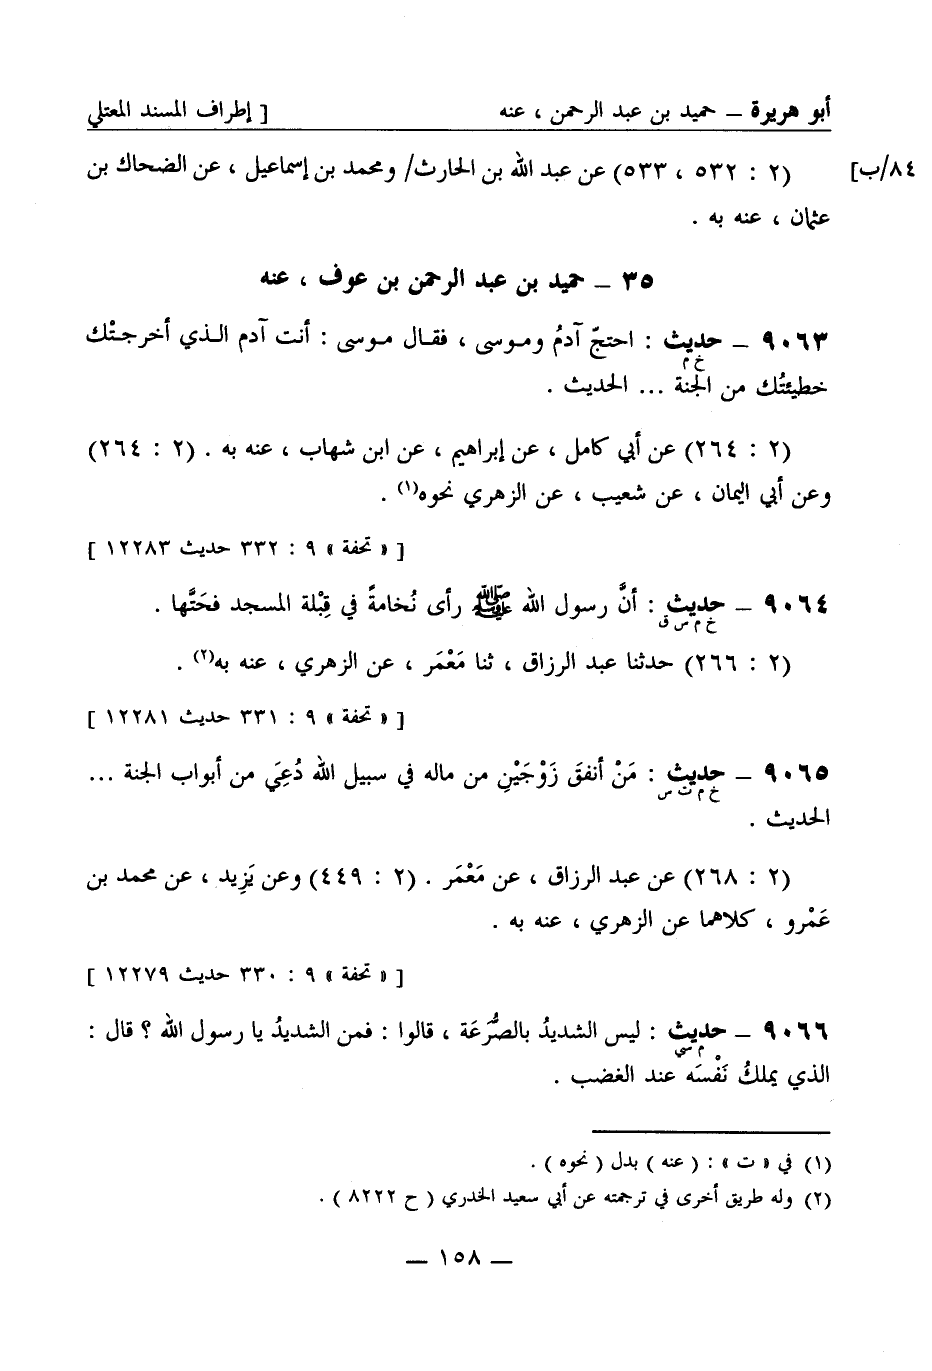 أبو هريرة – حميد بن عبد الرحمن ، عنه [ إطراف المسند المعتلي
٨٤/ب] (٢ : ٥٣٢ ، ٥٣٣) عن عبد الله بن الحارث/ ومحمد بن إسماعيل ، عن الضحاك بن
عثمان ، عنه به .
٣٥ – حميد بن عبد الرحمن بن عوف ، عنه
٩٠٦٣ – حديث : احتجّ آدمُ وموسى ، فقال موسى : أنت آدم الذي أخرجتْك
خ م
خطيئتُك من الجنة ... الحديث .
(٢ : ٢٦٤) عن أبي كامل ، عن إبراهيم ، عن ابن شهاب ، عنه به . (٢ : ٢٦٤)
وعن أبي اليمان ، عن شعيب ، عن الزهري نحوه(١) .
[ « تحفة » ٩ : ٣٣٢ حديث ١٢٢٨٣ ]
٩٠٦٤ – حديث : أنَّ رسول الله ﷺ رأى نُخامةً في قِبْلة المسجد فحَتَّها .
خ م س ق
(٢ : ٢٦٦) حدثنا عبد الرزاق ، ثنا مَعْمَر ، عن الزهري ، عنه به(٢) .
[ « تحفة » ٩ : ٣٣١ حديث ١٢٢٨١ ]
٩٠٦٥ – حديث : مَنْ أنفقَ زَوْجَيْنِ من ماله في سبيل الله دُعِيَ من أبواب الجنة ...
خ م ت س
الحديث .
(٢ : ٢٦٨) عن عبد الرزاق ، عن مَعْمَر . (٢ : ٤٤٩) وعن يَزِيد ، عن محمد بن
عَمْرو ، كلاهما عن الزهري ، عنه به .
[ « تحفة » ٩ : ٣٣٠ حديث ١٢٢٧٩ ]
٩٠٦٦ – حديث : ليس الشديدُ بالصُّرَعَة ، قالوا : فمن الشديدُ يا رسول الله ؟ قال :
م سي
الذي يملكُ نَفْسَه عند الغضب .
(١) في « ت » : ( عنه ) بدل ( نحوه ) .
(٢) وله طريق أخرى في ترجمته عن أبي سعيد الخدري ( ح ٨٢٢٢ ) .
– ١٥٨ –